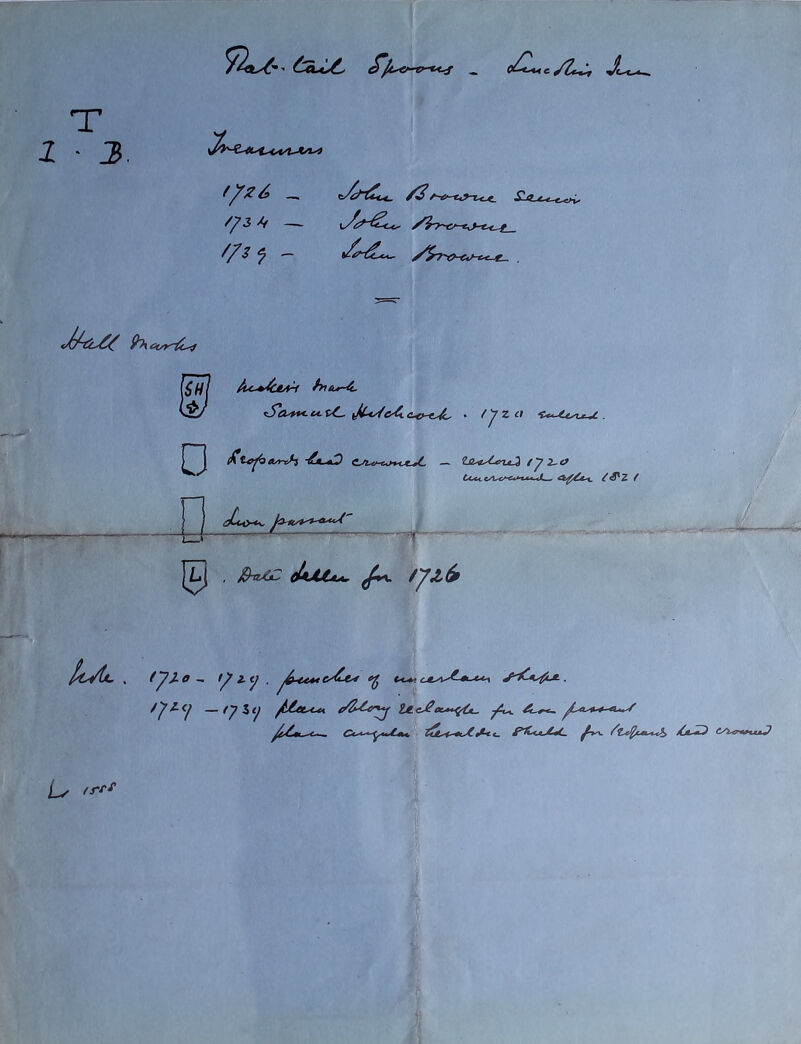 Rat-tail Spoons - Lincolns Inn
T
I · B.
Treasurers
1726 - John Browne Senior
1734 - John Browne
1739 - John Browne.
Hall Marks
SH makers mark
Samuel Hitchcock. 1720 entered.
Leopards head crowned - restored 1720
uncrowned after 1821
Lion passant
L. Date letter for 1726
Note. 1720 - 1729. punches of uncertain shape.
1729 - 1739 plain oblong rectangle for lion passant
plain angular heraldic shield for leopards head crowned